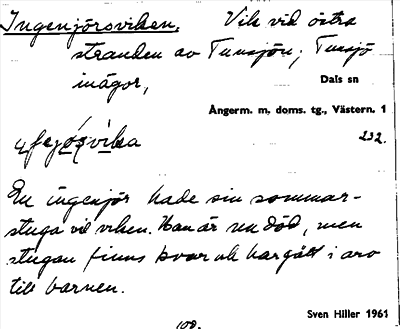 Ingenjörsviken. Vik vid östra
stranden av Tunsjön; Tunsjö
inägor,
Dals sn
Ångerm. m. doms. tg., Västern. 1
232.
En ingenjör hade sin sommar-
stuga vid viken. Han är nu död, men
stugan finns kvar och har gått i arv
till barnen.
Sven Hiller 1961
108.